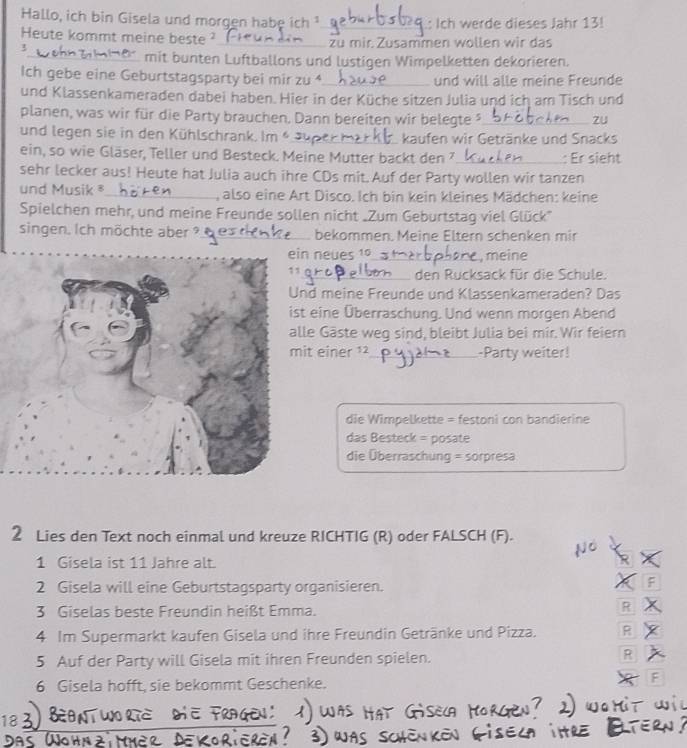 Hallo, ich bin Gisela und morgen habe ich ¹ geburtstag : Ich werde dieses Jahr 13!
Heute kommt meine beste ² Freundin zu mir. Zusammen wollen wir das
³ wohnzimmer mit bunten Luftballons und lustigen Wimpelketten dekorieren.
Ich gebe eine Geburtstagsparty bei mir zu ⁴ hause und will alle meine Freunde
und Klassenkameraden dabei haben. Hier in der Küche sitzen Julia und ich am Tisch und
planen, was wir für die Party brauchen. Dann bereiten wir belegte ⁵ brötchen zu
und legen sie in den Kühlschrank. Im ⁶ supermarkt kaufen wir Getränke und Snacks
ein, so wie Gläser, Teller und Besteck. Meine Mutter backt den ⁷ Kuchen : Er sieht
sehr lecker aus! Heute hat Julia auch ihre CDs mit. Auf der Party wollen wir tanzen
und Musik ⁸ hören, also eine Art Disco. Ich bin kein kleines Mädchen: keine
Spielchen mehr, und meine Freunde sollen nicht „Zum Geburtstag viel Glück"
singen. Ich möchte aber ⁹ geschenke bekommen. Meine Eltern schenken mir
ein neues ¹⁰ smartphone, meine
¹¹ den Rucksack für die Schule.
Und meine Freunde und Klassenkameraden? Das
ist eine Überraschung. Und wenn morgen Abend
alle Gäste weg sind, bleibt Julia bei mir. Wir feiern
mit einer ¹² pyjama -Party weiter!
die Wimpelkette = festoni con bandierine
das Besteck = posate
die Überraschung = sorpresa
2 Lies den Text noch einmal und kreuze RICHTIG (R) oder FALSCH (F).
NO
1 Gisela ist 11 Jahre alt. R
2 Gisela will eine Geburtstagsparty organisieren. F
3 Giselas beste Freundin heißt Emma. R
4 Im Supermarkt kaufen Gisela und ihre Freundin Getränke und Pizza. R
5 Auf der Party will Gisela mit ihren Freunden spielen. R
6 Gisela hofft, sie bekommt Geschenke. F
18 3) BEANTWORTE DIE FRAGEN: 1) WAS HAT GISELA MORGEN? 2) WOMIT WIL
DAS WOHNZIMMER DEKORIEREN? 3) WAS SCHENKEN GISELA IHRE ELTERN?